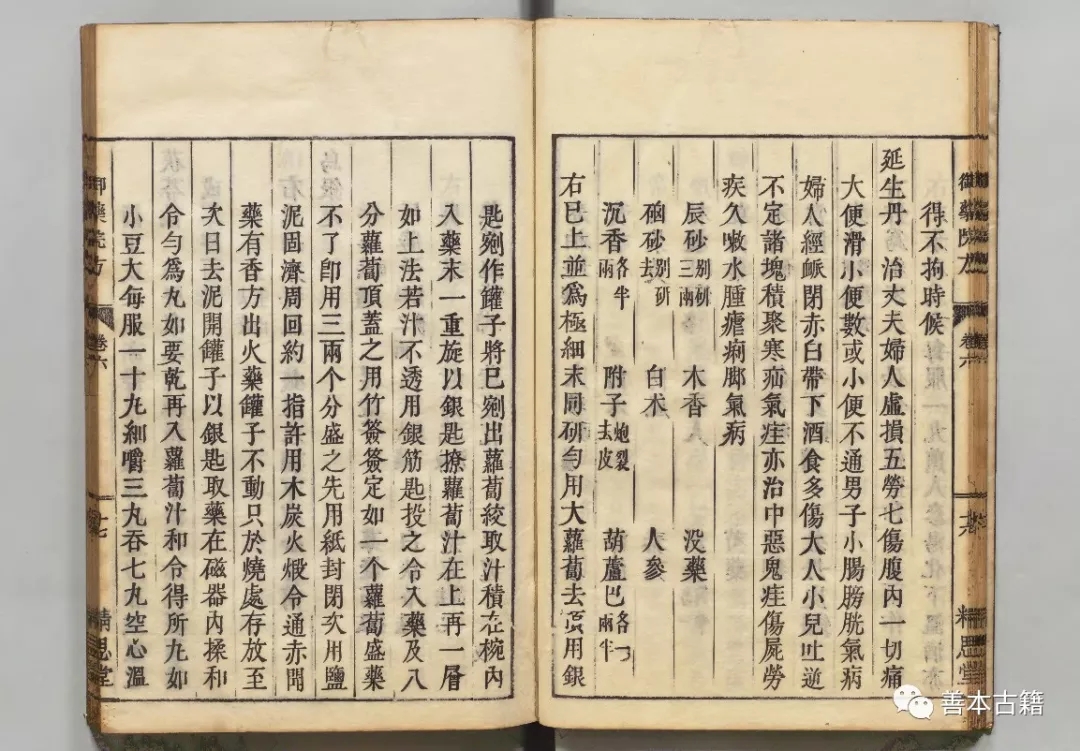 得不拘時候
延生丹治丈夫婦人虛損五勞七傷腹內一切痛
大便滑小便數或小便不通男子小腸膀胱氣病
婦人經脈閉赤白帶下酒食多傷大人小兒吐逆
不定諸塊積聚寒疝氣疰亦治中惡鬼疰傷屍勞
疾久嗽水腫瘧痢腳氣病
辰砂別研三兩 木香 没藥
硇砂別研去 白朮 人參
沉香各半兩 附子炮裂去皮 葫蘆巴各一兩半
右已上並爲極細末同研勻用大蘿蔔去頂用銀
御藥院方 卷六 十六 精思堂
匙剜作罐子將已剜出蘿蔔絞取汁積在椀內
入藥末一重旋以銀匙撩蘿蔔汁在上再一層
如上法若汁不透用銀筋匙投之令入藥及八
分蘿蔔頂蓋之用竹簽簽定如一个蘿蔔盛藥
不了卽用三兩个分盛之先用紙封閉次用鹽
泥固濟周回約一指許用木炭火煅令通赤聞
藥有香方出火藥罐子不動只於燒處存放至
次日去泥開罐子以銀匙取藥在磁器內揉和
令勻爲丸如要乾再入蘿蔔汁和令得所丸如
小豆大每服一十丸細嚼三丸吞七丸空心溫
御藥院方 卷六 十七 精思堂
善本古籍